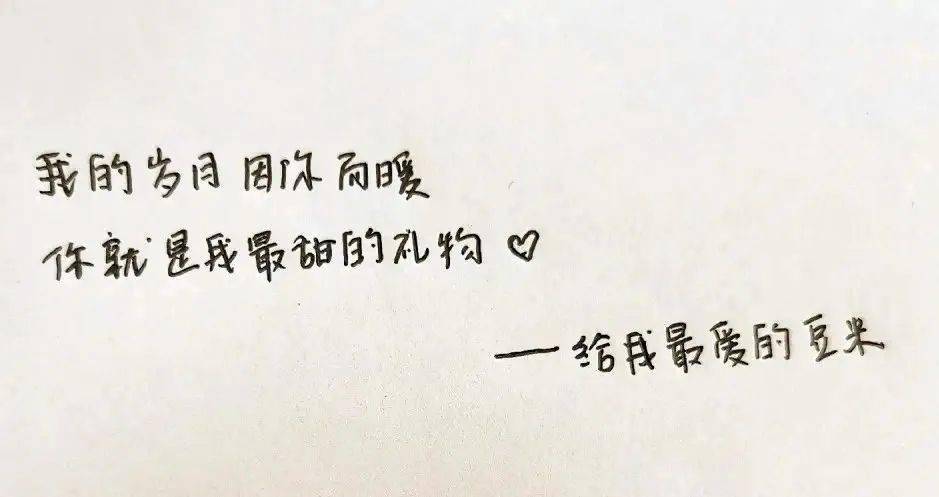 我的岁月因你而暖
你就是我最甜的礼物♡
—给我最爱的豆米